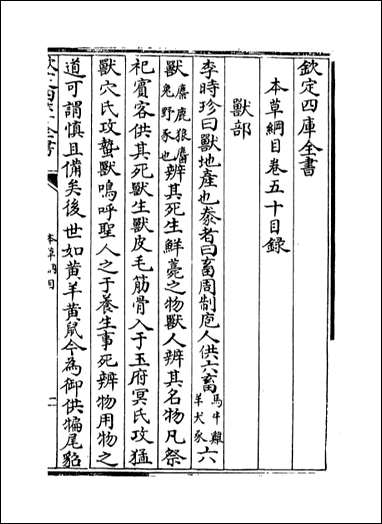 欽定四庫全書
本草綱目卷五十目録
獸部
李時珍曰獸地産也豢者曰畜周制庖人供六畜馬牛雞羊犬豕六
獸麋鹿狼麕兔野豕也辨其死生鮮薧之物獸人辨其名物凡祭
祀賓客供其死獸生獸皮毛筋骨入于玉府冥氏攻猛
獸穴氏攻蟄獸嗚呼聖人之于養生事死辨物用物之
道可謂慎且備矣後世如黄羊黄鼠今為御供犏尾貂